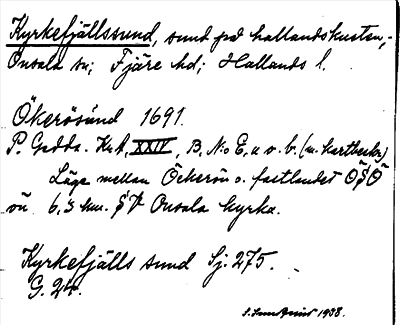 Kyrkefjällssund, sund på hallandskusten,
Onsala sn; Fjäre hd; Hallands l.
Ökerösund 1691.
P. Gedda. Krt, XXIV, B, N:o E, u v. b. (m. kartbeskr)
Läge mellan Öckerön o. fastlandet
6,3 km. Onsala kyrka.
Kyrkefjälls sund Sj: 275.
G. 2
1938.